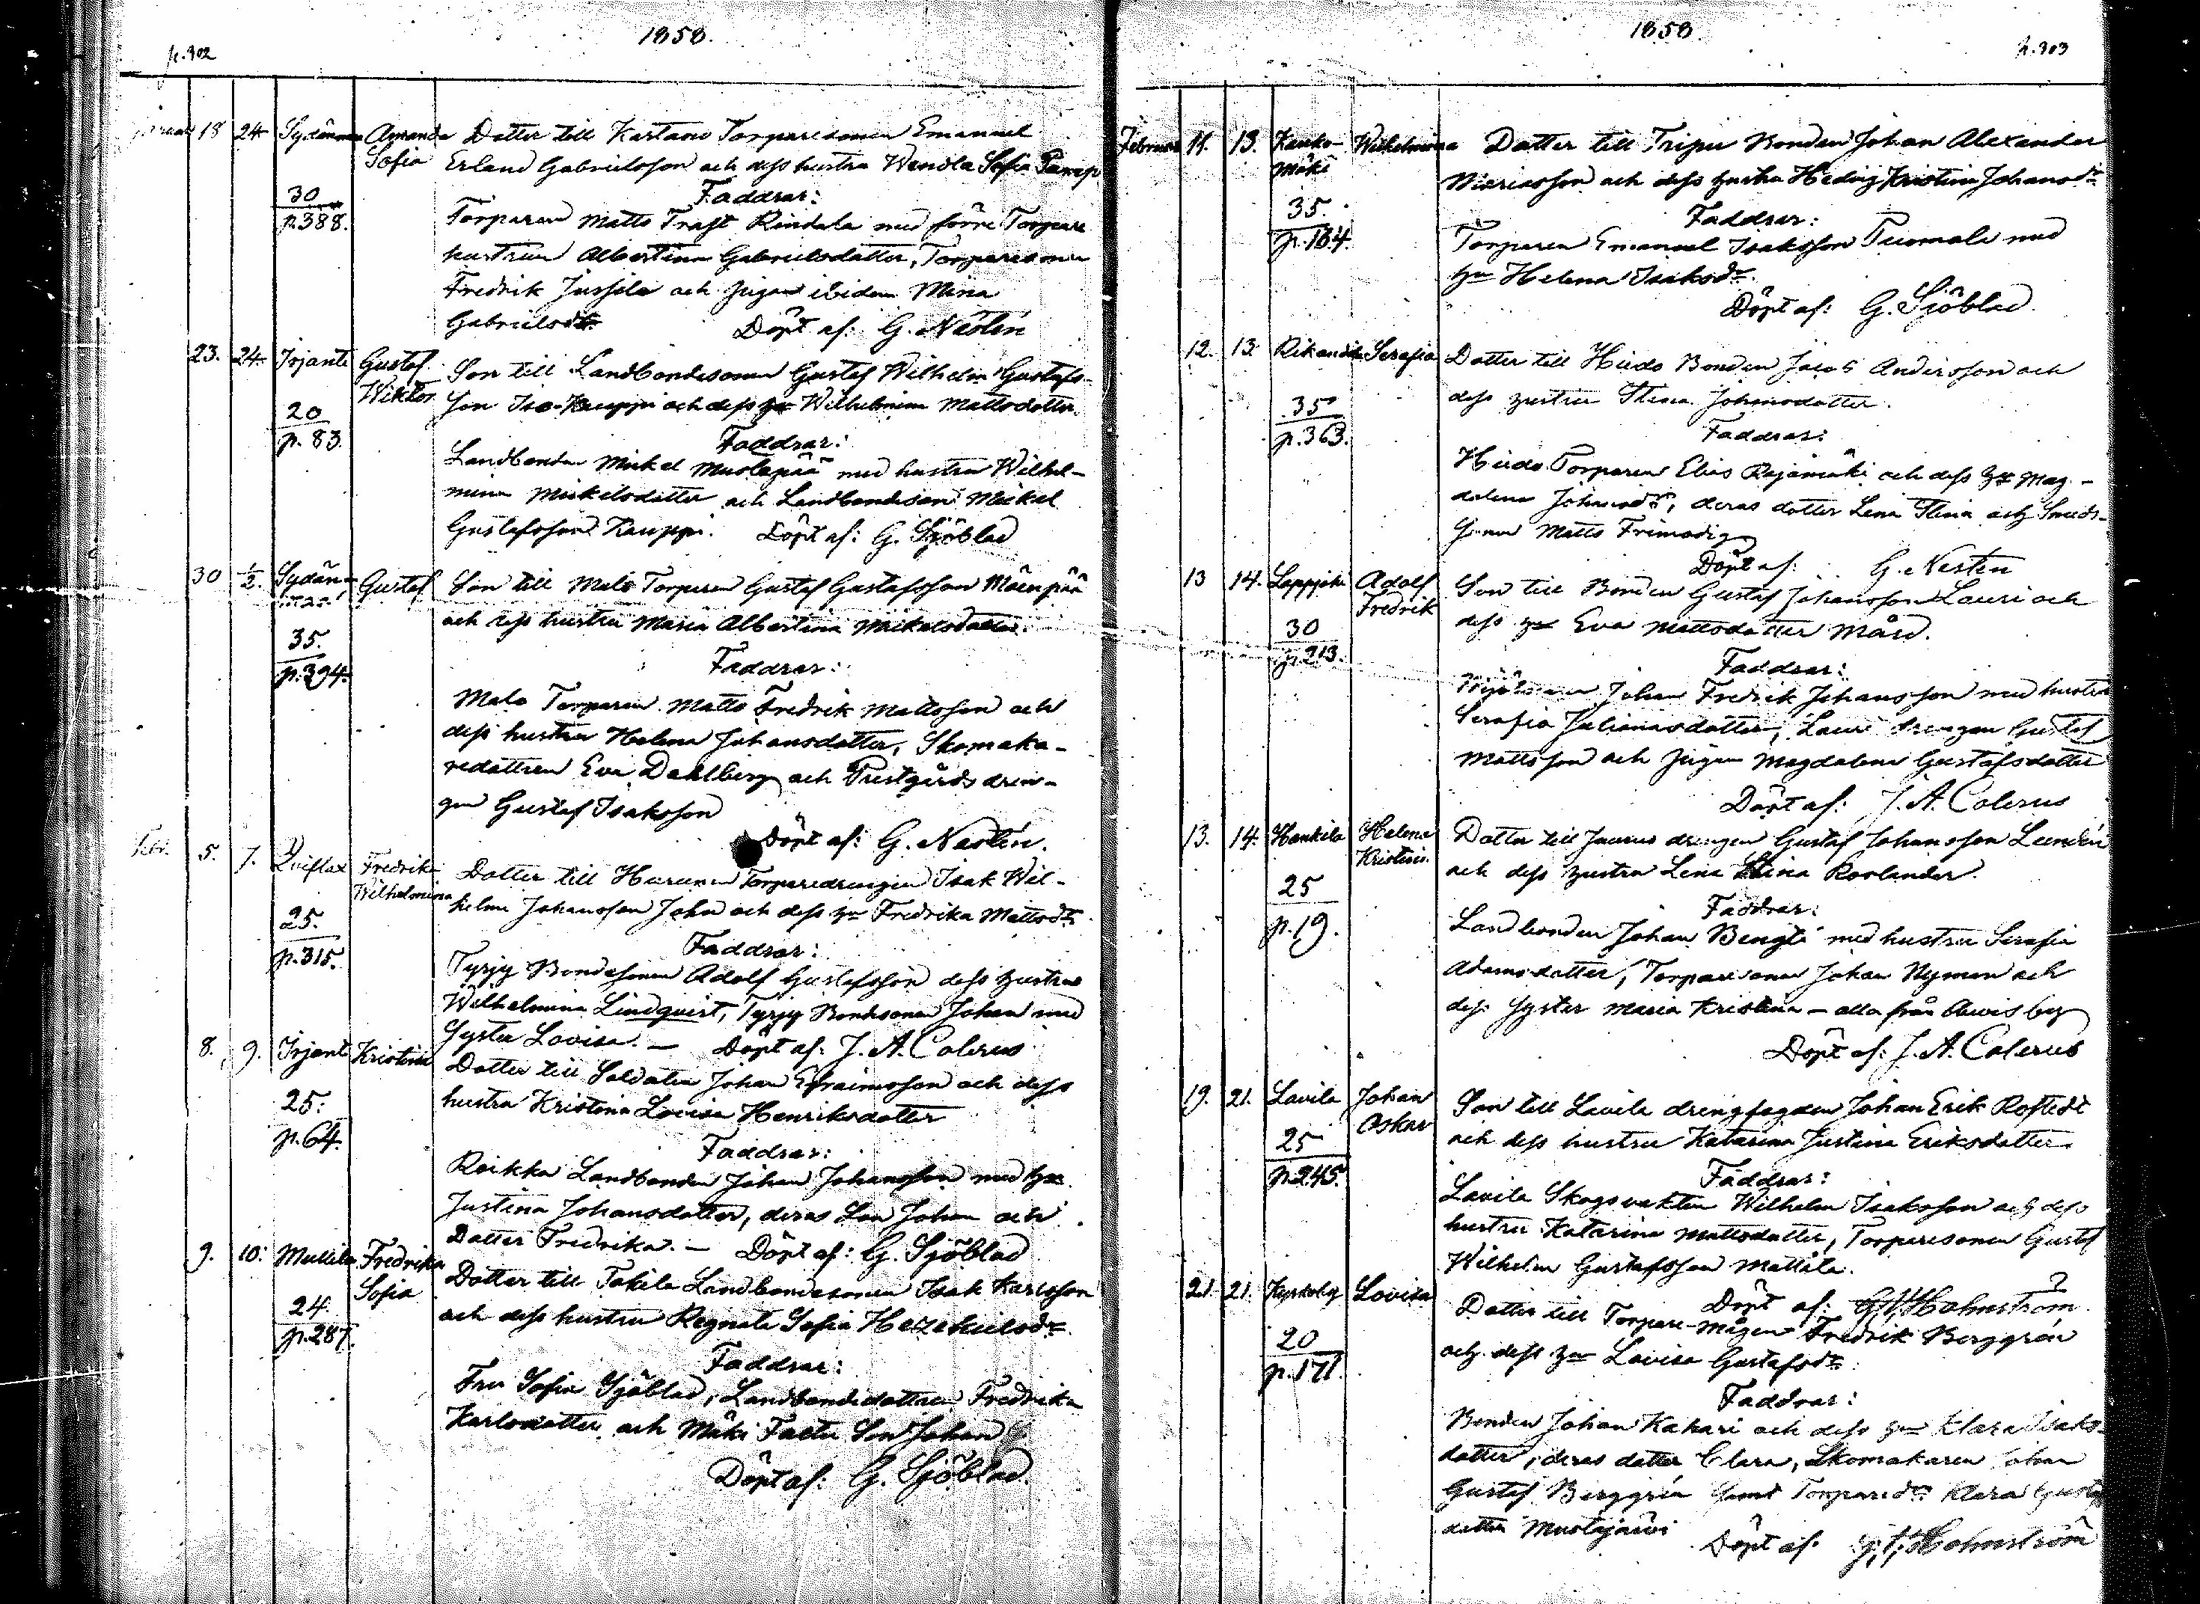 p. 302
1858.
18 24 Sydänmaa Amanda Dotter till Kartano Torparesonen Emanuel
Sofia Erland Gabrielsson och dess hustru Wendla Sofia
Faddrar:
30
p. 388.
Torparen Matts Trast Rindala med förre Torpare
hustrun Albertina Gabrielsdotter, Torparesonen
Fredrik Jussila och pigan ibidem Mina
Gabrielsdr. Döpt af: G. Neslin
23. 24. Irjanti Gustaf Son till Landbondesonen Gustaf Wilhelm Gustafs-
Wiktor son Iso-Kauppi och dess hu Wilhelmina Mattsdotter.
20
p. 83.
Faddrar:
Landbonden Mickel Mustapää med hustru Wilhel-
mina Mickelsdotter och Landbondeson Mickel
Gustafsson Kauppi. Döpt af: G. Sjöblad
30 1/2. Sydän- Gustaf Son till Malo Torparen Gustaf Gustafsson Mäenpää
maa och dess hustru Maria Albertina Mickelsdotter.
35.
p. 394.
Faddrar:
Malo Torparen Matts Fredrik Mattsson och
dess hustru Helena Johansdotter, Skomaka-
redottren Eva Dahlberg och Prestgårds dren-
gen Gustaf Isaksson
Döpt af: G. Neslin.
Febr. 5. 7. Qviflax Fredrika Dotter till Torparedrengen Isak Wil-
Wilhelmina helm Johansson John och dess hu Fredrika Mattsdr.
25.
p. 315.
Faddrar:
Tyrjy Bondesonen Adolf Gustafsson dess hustru
Wilhelmina Lindqvist, Tyrjy Bondesonen Johan med
Syster Lovisa. — Döpt af: J. A. Colerus
8. 9. Irjanti Kristina Dotter till Soldaten Johan Efraimsson och dess
hustru Kristina Lovisa Henriksdotter
25.
p. 64.
Faddrar:
Roikka Landbonden Johan Johansson med hu.
Justina Johansdotter, deras Son Johan och
Dotter Fredrika. — Döpt af: G. Sjöblad
9. 10. Mullila Fredrika Dotter till Takila Landbondesonen Isak Karlsson
Sofia och dess hustru Regnata Sofia Hezekielsdr.
24.
p. 287.
Faddrar:
Fru Sofia Sjöblad, Landbondedottren Fredrika
Karlsdotter och Mäki Son Johan
Döpt af: G. Sjöblad.
1858.
p. 303
Februari 11. 13. Kauko- Wilhelmina Dotter till Tripu Bonden Johan Alexander
mäki och dess hustru Hedvig Kristina Johansdr.
35.
p. 164.
Faddrar:
Torparen Emanuel Isaksson Tuomala med
hu Helena Isaksdr.
Döpt af: G. Sjöblad.
12. 13 Serafia Dotter till Hiido Bonden Jacob Andersson och
dess hustru Stina Johansdotter.
35
p. 363.
Faddrar:
Hiido Torparen Elias Rajamäki och dess hu Mag-
dalena Johansdr, deras dotter Lena Stina och Smeds-
sonen Matts Frimodig
Döpt af: G. Neslin
13 14. Leppijä Adolf Son till Bonden Gustaf Johansson Lauri och
Fredrik dess hu Eva Mattsdotter Mård.
30
p. 213.
Faddrar:
Johan Fredrik Johansson med hustru
Serafia Julianasdotter, Lauri drengen Gustaf
Mattsson och pigan Magdalena Gustafsdotter
Döpt af: J. A. Colerus
13. 14. Hankila Helena Dotter till drengen Gustaf Johansson Lundén
Kristina och dess hustru Lena Stina Roslander.
25
p. 19.
Faddrar:
Landbonden Johan Bengts med hustru Serafia
Adamsdotter, Torparesonen Johan Nyman och
dess Syster Maria Kristina — alla från
Döpt af: J. A. Colerus
19. 21. Lavila Johan Son till Lavila drengfogden Johan Erik Rostedt
Oskar och dess hustru Katarina Justina Eriksdotter
25
p. 245.
Faddrar:
Lavila Skogsvakten Wilhelm Isaksson och dess
hustru Katarina Mattsdotter, Torparesonen Gustaf
Wilhelm Gustafsson Mattila.
Döpt af: Holmström
21. 21. Kyrkoby Lovisa Dotter till Torpare-mågen Fredrik Berggrén
och dess hu Lovisa Gustafsdr.
20
p. 171.
Faddrar:
Bonden Johan Kakari och dess hu Klara Isaks-
dotter, deras dotter Clara, Skomakaren Johan
Gustaf Berggrén samt Torparedr. Klara Gustaf
dotter Mustajärvi
Döpt af: Holmström